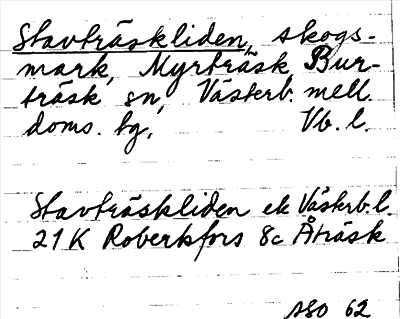 Stavträskliden, skogs-
mark, Myrträsk, Bur-
träsk sn, Västerb. mell.
doms. bg, Vb. l.
Stavträskliden ek Västerb. l.
21K Robertsfors 8c Åträsk
ASO 62